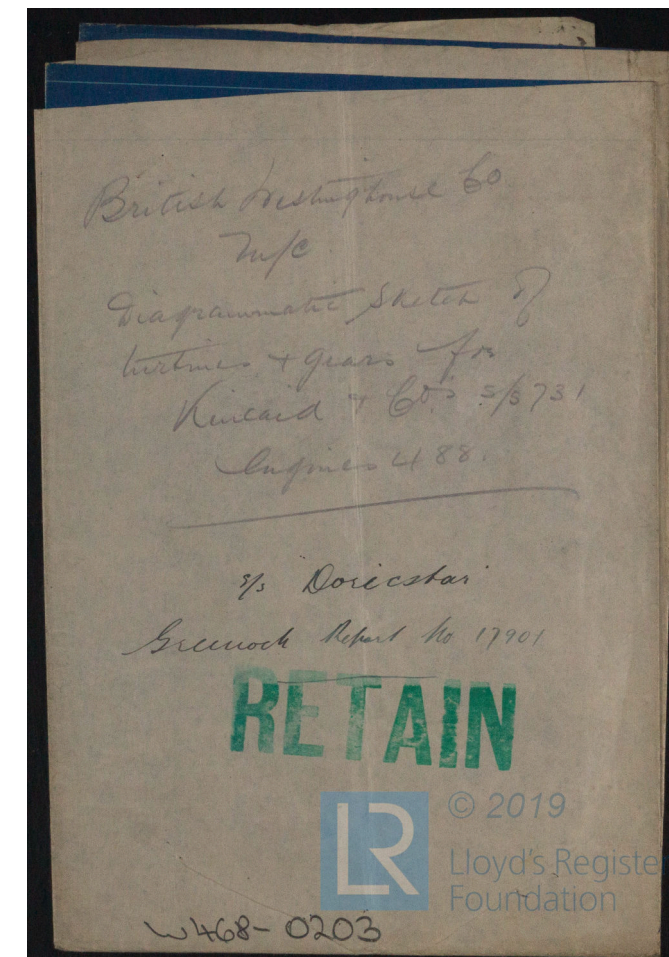 British Westinghouse Co
M/c
Diagrammatic Sketch of
turbines + gears for
Kincaid & Co's s/s 731
Engines 488.
s/s Doricstar
Greenock Report No 17901
RETAIN
LR
© 2019
Lloyd's Registe
Foundation
W468-0203